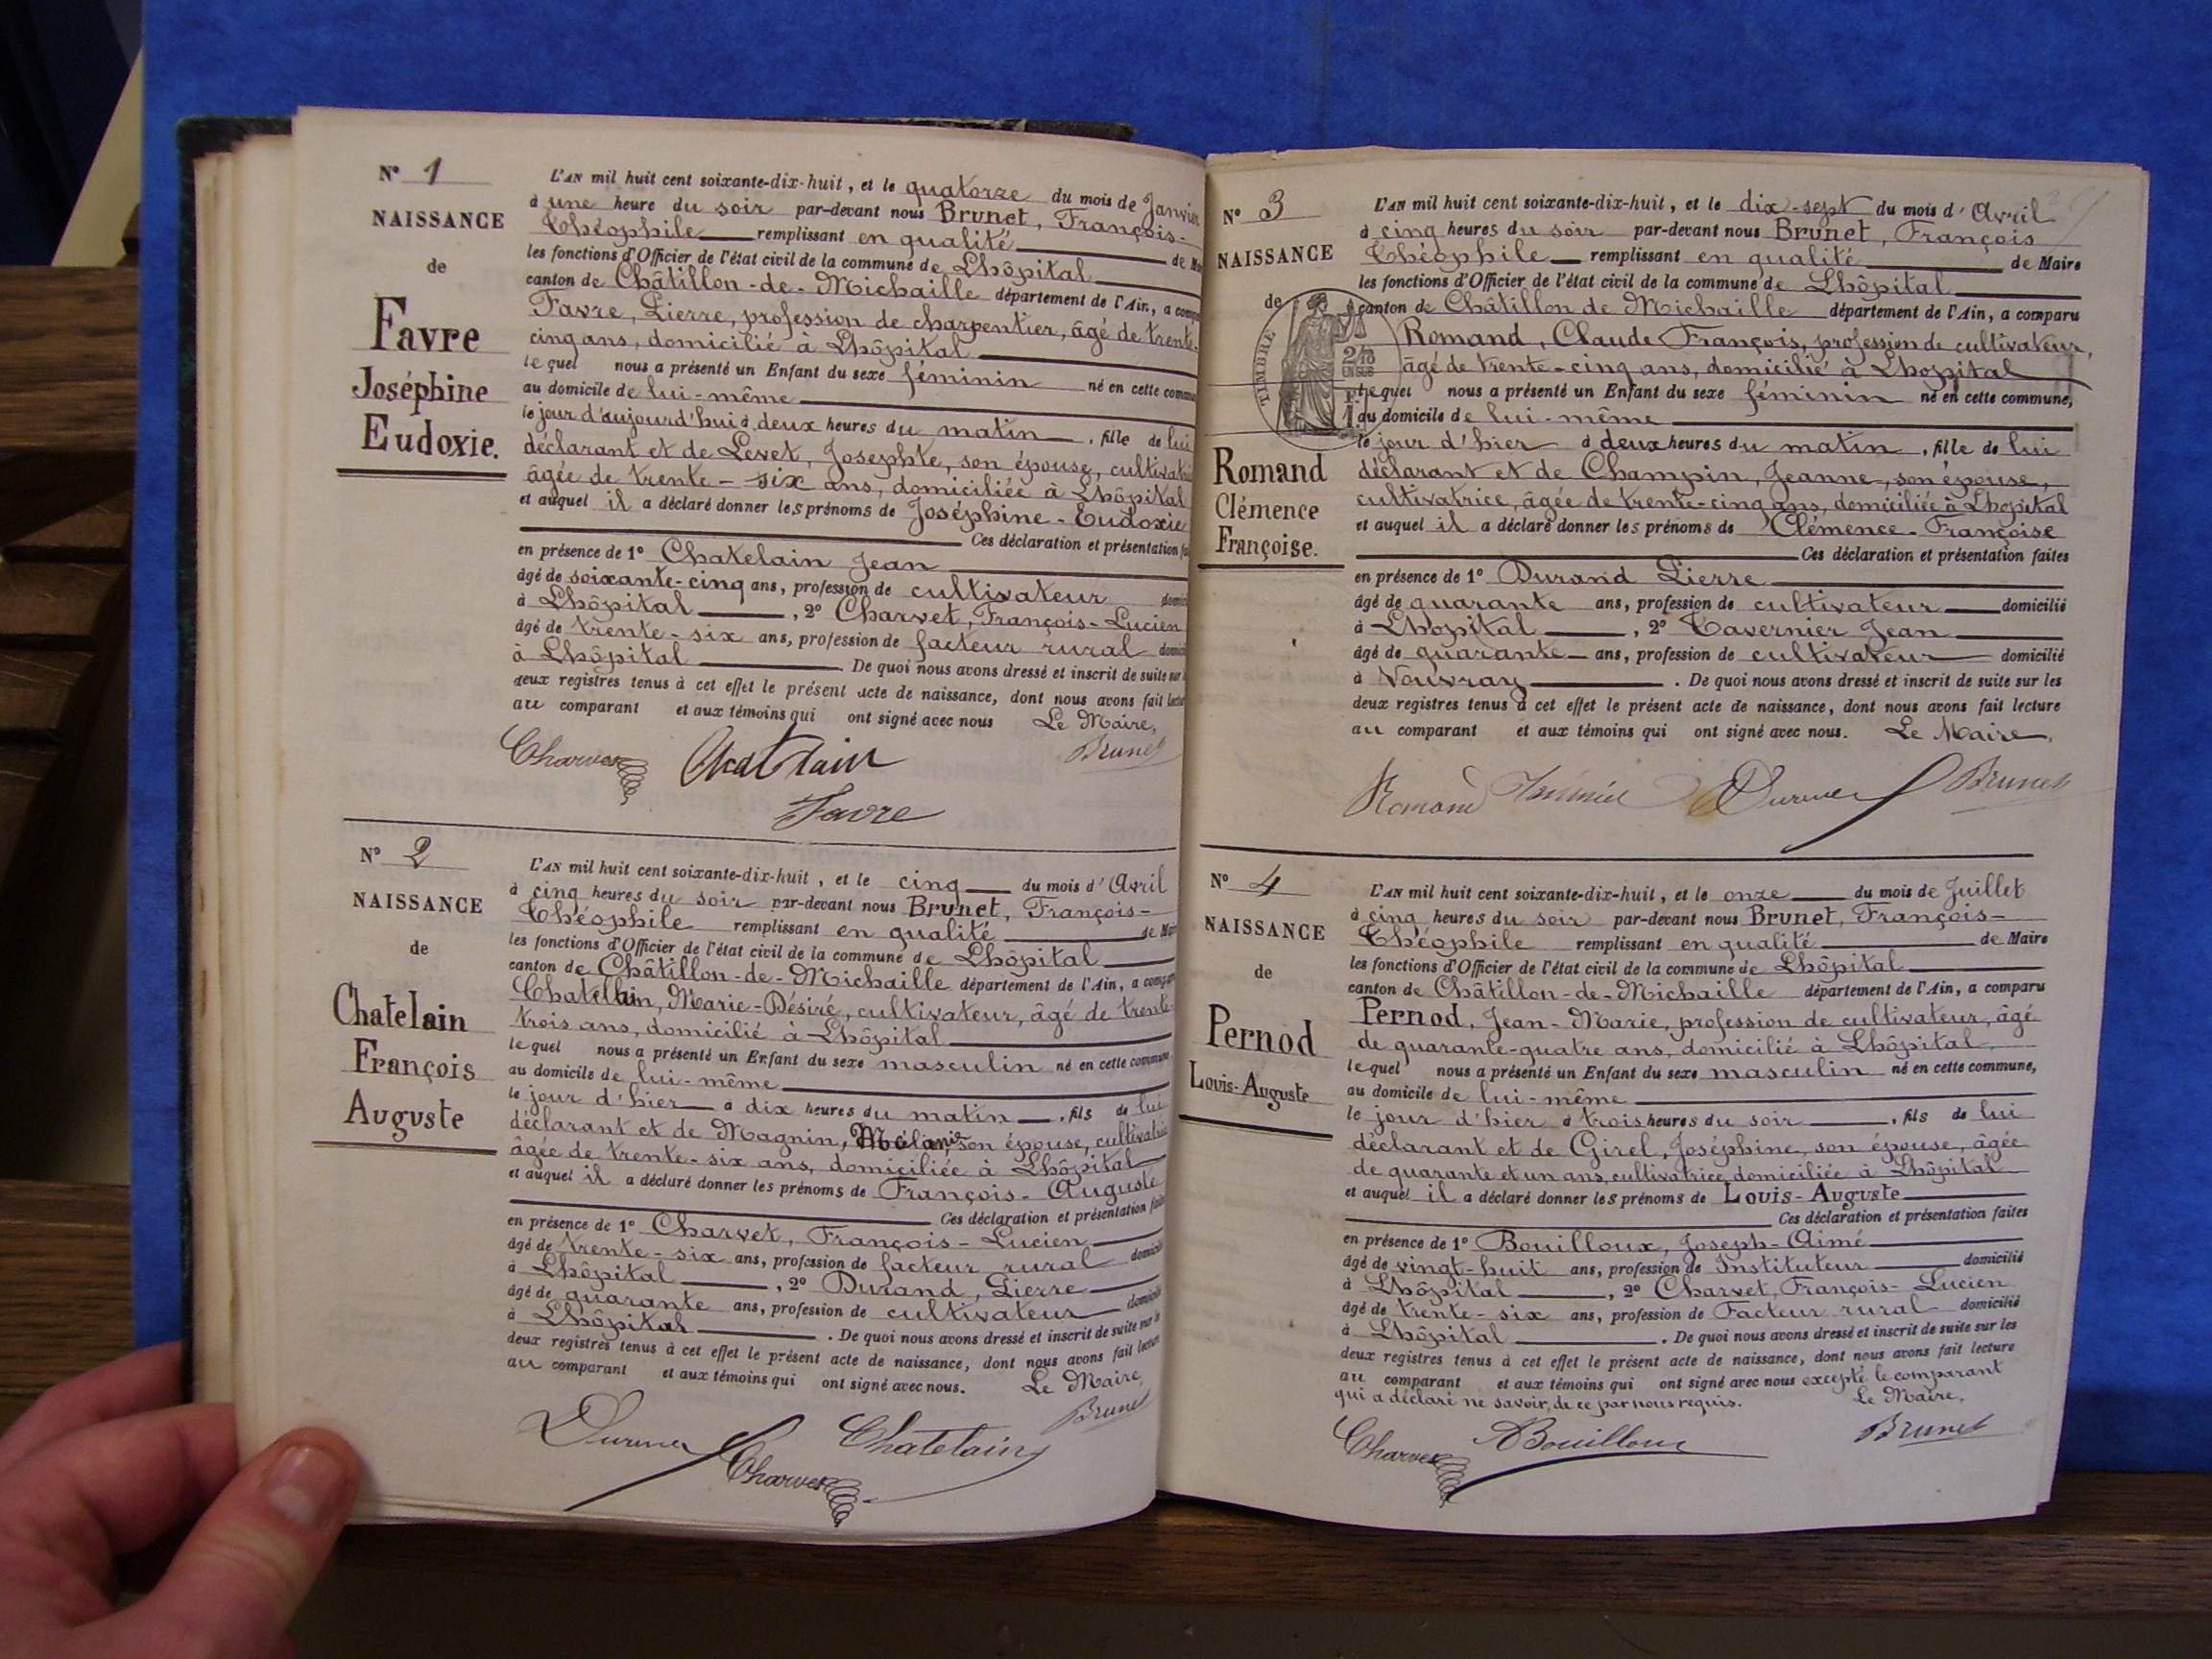 N° 1
NAISSANCE
de
Favre
Joséphine
Eudoxie.
L'AN mil huit cent soixante-dix-huit, et le quatorze du mois de Janvier
à une heure du soir par-devant nous Brunet, François-
Théophile remplissant en qualité de
les fonctions d'Officier de l'état civil de la commune de Lhôpital
canton de Châtillon-de-Michaille département de l'Ain, a
Favre, Pierre, profession de charpentier, âgé de trente-
cinq ans, domicilié à Lhôpital
lequel nous a présenté un Enfant du sexe féminin né en cette
au domicile de lui-même
le jour d'aujourd'hui à deux heures du matin, fille de lui
déclarant et de Levet, Josephte, son épouse,
âgée de trente-six ans, domiciliée à Lhôpital
et auquel il a déclaré donner les prénoms de Joséphine-Eudoxie
Ces déclaration et présentation
en présence de 1° Chatelain Jean
âgé de soixante-cinq ans, profession de cultivateur
à Lhôpital, 2° Charvet, François-Lucien
âgé de trente-six ans, profession de facteur rural
à Lhôpital De quoi nous avons dressé et inscrit de suite sur
deux registres tenus à cet effet le présent acte de naissance, dont nous avons fait
au comparant et aux témoins qui ont signé avec nous Le Maire,
Charvet Chatelain Brunet
Favre
N° 2
NAISSANCE
de
Chatelain
François
Auguste
L'AN mil huit cent soixante-dix-huit, et le cinq du mois d'Avril
à cinq heures du soir par-devant nous Brunet, François-
Théophile remplissant en qualité de
les fonctions d'Officier de l'état civil de la commune de Lhôpital
canton de Châtillon-de-Michaille département de l'Ain, a
Chatelain, Marie-Désiré, cultivateur, âgé de trente-
trois ans, domicilié à Lhôpital
lequel nous a présenté un Enfant du sexe masculin né en cette commune
au domicile de lui-même
le jour d'hier à dix heures du matin, fils de lui
déclarant et de Magnin, Mélanie, son épouse,
âgée de trente-six ans, domiciliée à Lhôpital
et auquel il a déclaré donner les prénoms de François-Auguste
Ces déclaration et présentation
en présence de 1° Charvet, François-Lucien
âgé de trente-six ans, profession de facteur rural
à Lhôpital, 2° Durand, Pierre
âgé de quarante ans, profession de cultivateur
à Lhôpital. De quoi nous avons dressé et inscrit de suite sur
deux registres tenus à cet effet le présent acte de naissance, dont nous avons fait
au comparant et aux témoins qui ont signé avec nous. Le Maire,
Chatelain Brunet
Charvet
N° 3
NAISSANCE
de
TIMBRE
Romand
Clémence
Françoise.
L'AN mil huit cent soixante-dix-huit, et le dix-sept du mois d'Avril
à cinq heures du soir par-devant nous Brunet, François
Théophile remplissant en qualité de Maire
les fonctions d'Officier de l'état civil de la commune de Lhôpital
canton de Châtillon de Michaille département de l'Ain, a comparu
Romand, Claude François, profession de cultivateur,
âgé de trente-cinq ans, domicilié à Lhopital
lequel nous a présenté un Enfant du sexe féminin né en cette commune,
au domicile de lui-même
le jour d'hier à deux heures du matin, fille de lui
déclarant et de Champin, Jeanne, son épouse,
cultivatrice, âgée de trente-cinq ans, domiciliée à Lhopital
et auquel il a déclaré donner les prénoms de Clémence-Françoise
Ces déclaration et présentation faites
en présence de 1° Durand Pierre
âgé de quarante ans, profession de cultivateur domicilié
à Lhopital, 2° Tavernier Jean
âgé de quarante ans, profession de cultivateur domicilié
à Vouvray. De quoi nous avons dressé et inscrit de suite sur les
deux registres tenus à cet effet le présent acte de naissance, dont nous avons fait lecture
au comparant et aux témoins qui ont signé avec nous. Le Maire,
Romand Brunet
N° 4
NAISSANCE
de
Pernod
Louis-Auguste
L'AN mil huit cent soixante-dix-huit, et le onze du mois de Juillet
à cinq heures du soir par-devant nous Brunet, François-
Théophile remplissant en qualité de Maire
les fonctions d'Officier de l'état civil de la commune de Lhôpital
canton de Châtillon-de-Michaille département de l'Ain, a comparu
Pernod, Jean-Marie, profession de cultivateur, âgé
de quarante-quatre ans, domicilié à Lhôpital,
lequel nous a présenté un Enfant du sexe masculin né en cette commune,
au domicile de lui-même
le jour d'hier à trois heures du soir, fils de lui
déclarant et de Girel, Joséphine, son épouse, âgée
de quarante et un ans, cultivatrice, domiciliée à Lhôpital
et auquel il a déclaré donner les prénoms de Louis-Auguste
Ces déclaration et présentation faites
en présence de 1° Bouilloux, Joseph-Aimé
âgé de vingt-huit ans, profession de Instituteur domicilié
à Lhôpital, 2° Charvet, François-Lucien
âgé de trente-six ans, profession de Facteur rural domicilié
à Lhôpital. De quoi nous avons dressé et inscrit de suite sur les
deux registres tenus à cet effet le présent acte de naissance, dont nous avons fait lecture
au comparant et aux témoins qui ont signé avec nous excepté le comparant
qui a déclaré ne savoir, de ce par nous requis. Le Maire,
Charvet Bouilloux Brunet